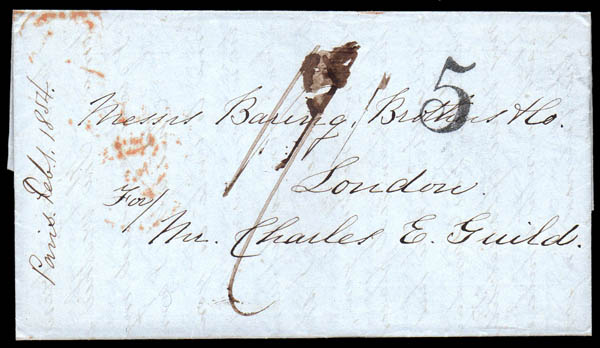 5
Messrs Baring, Brothers & Co.
London.
For/
Mr. Charles E. Guild.
Paris. Feb 1. 1854.